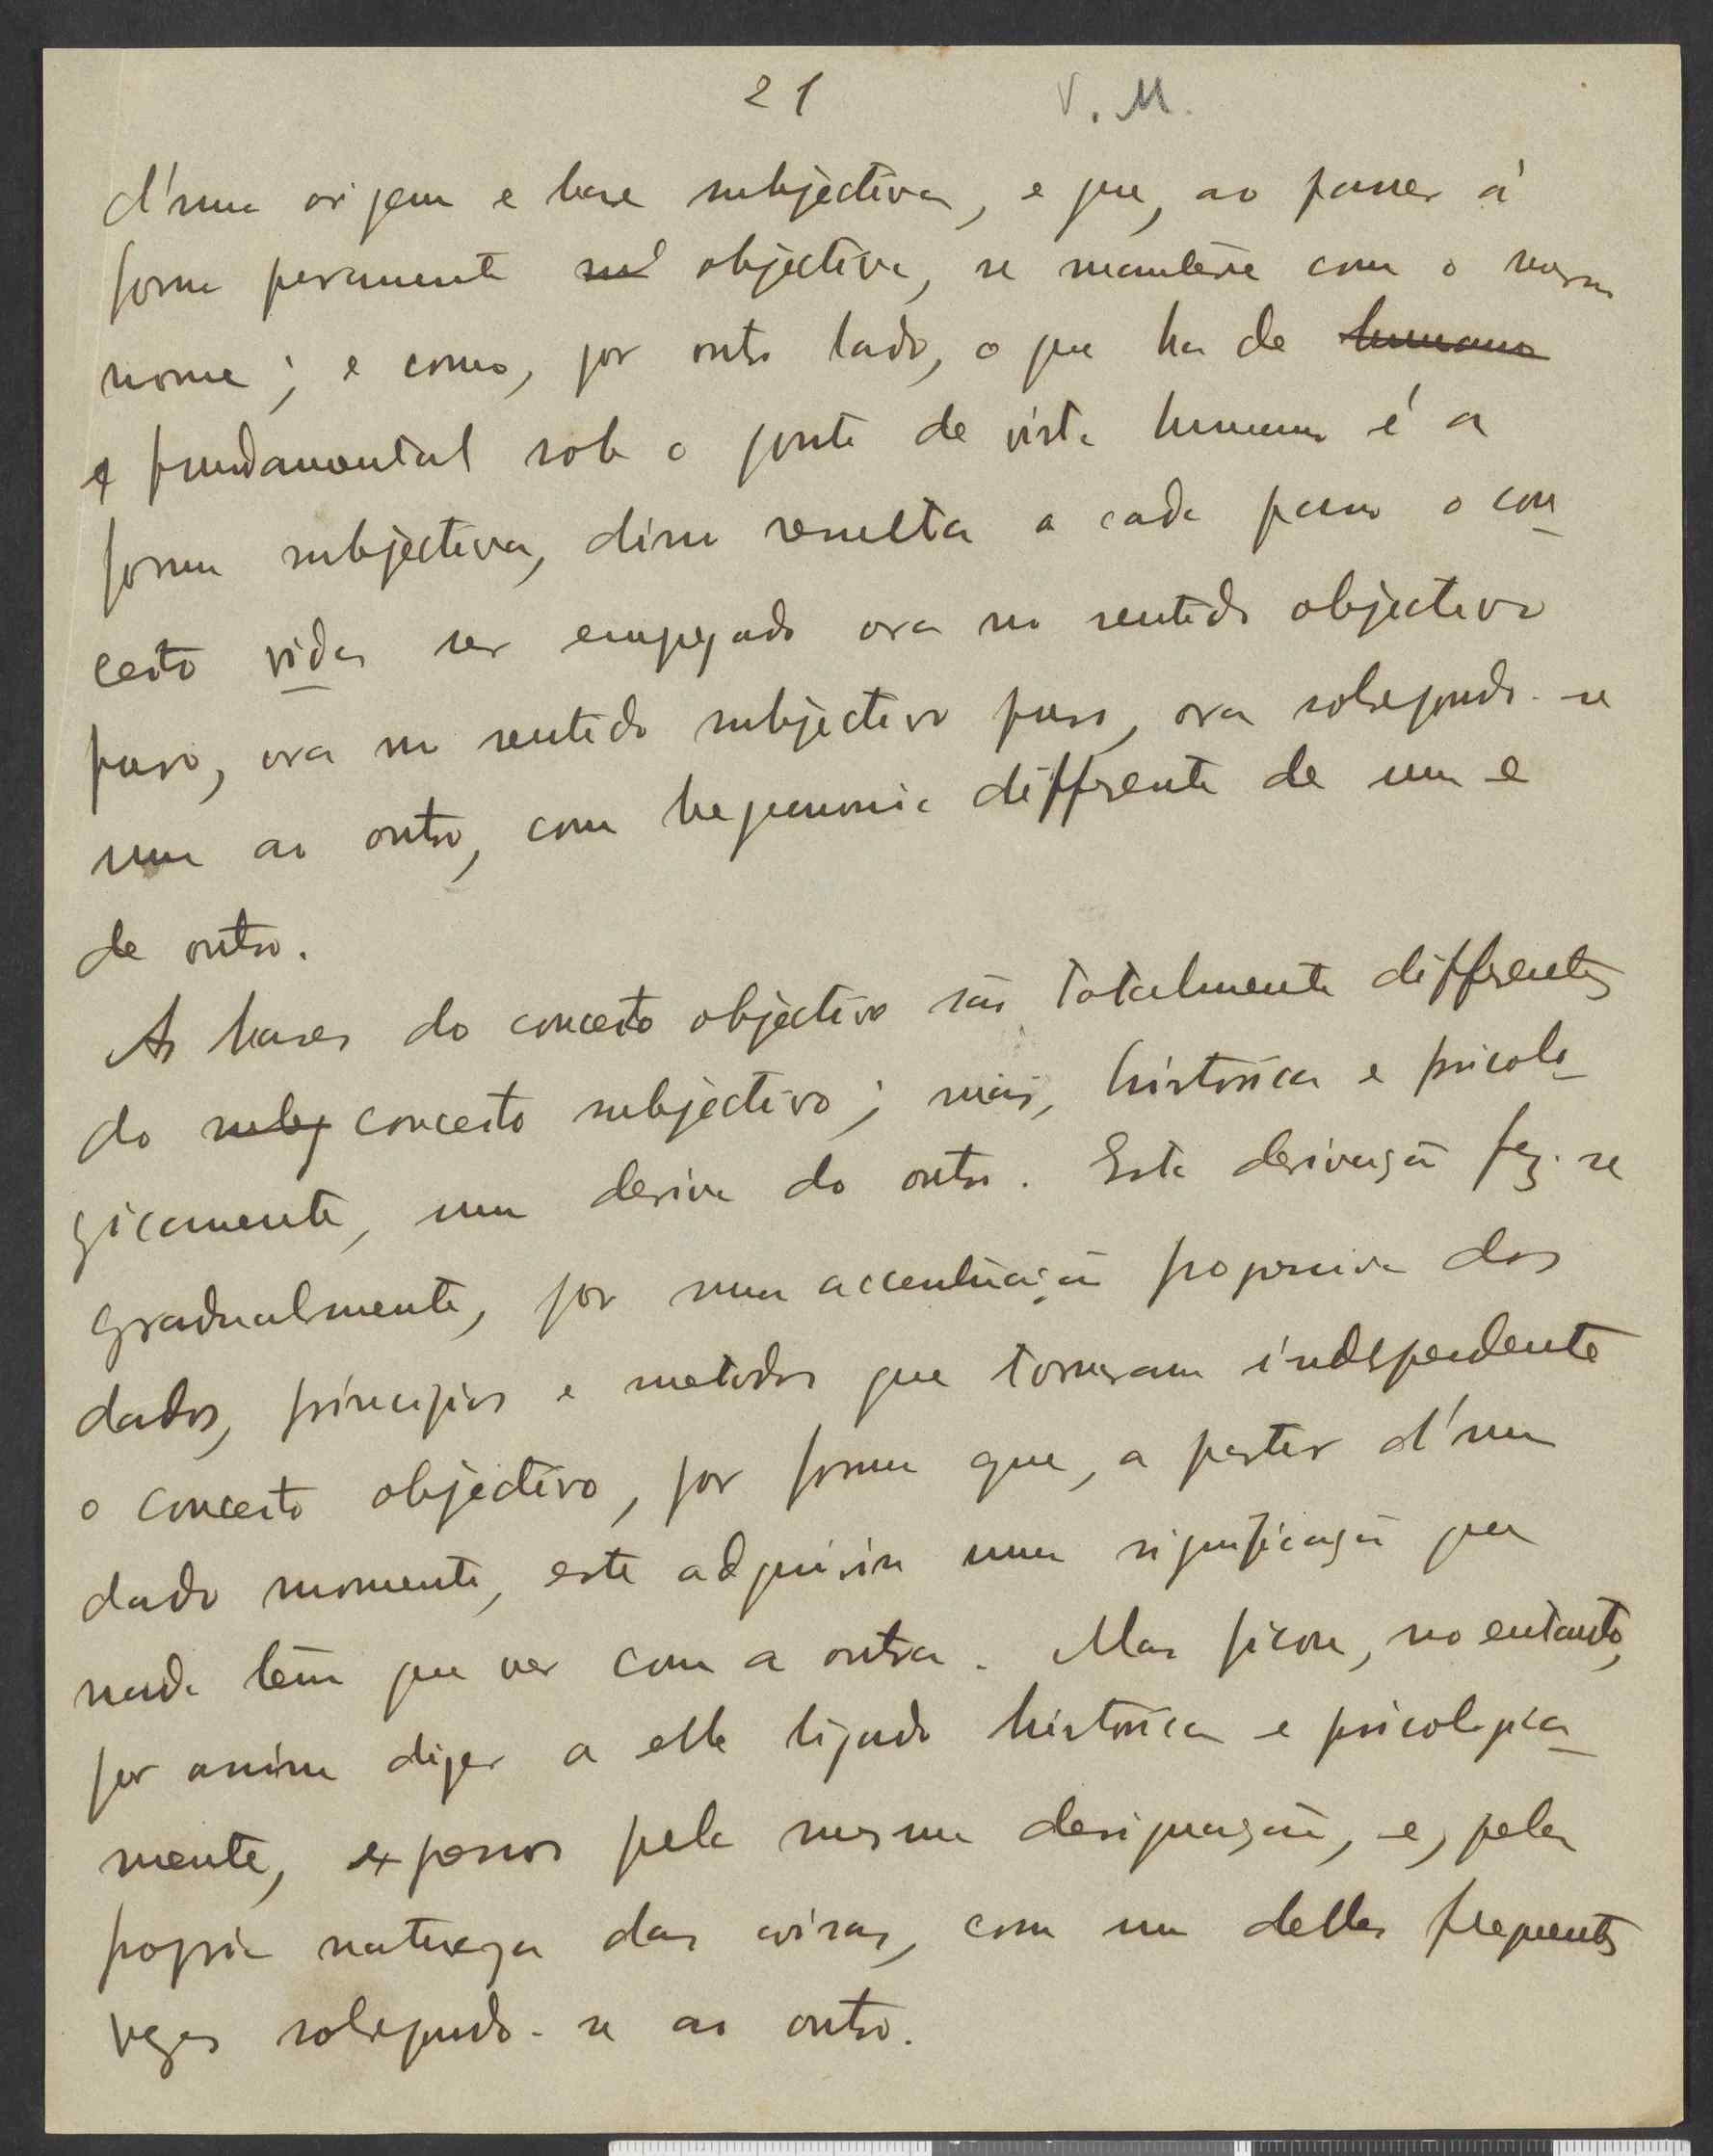 21 V. M.
d'uma origem e base subjectiva, e que, ao passar á
forma puramente sub objectiva, se manteve com o mesmo
nome; e como, por outro lado, o que ha de humano
e fundamental sob o ponto de vista humano é a
forma subjectiva, disso resulta a cada passo o con-
ceito vida ser empregado ora no sentido objectivo
puro, ora no sentido subjectivo puro, ora sobrepondo-se
um ao outro, com hegemonia differente de um e
de outro.
As bases do conceito objectivo são totalmente differentes
do subj conceito subjectivo; mais, historica e psicolo-
gicamente, um deriva do outro. Esta derivação fez-se
gradualmente, por uma accentuação progressiva dos
dados, principios e metodos que tornaram independente
o conceito objectivo, por forma que, a partir d'um
dado momento, este adquirira uma significação que
nada tem que ver com a outra. Mas ficou, no entanto,
por assim dizer a elle ligado historica e psicologica-
mente, expressos pela mesma designação, e, pela
propria natureza das coisas, com um delles frequentes
vezes sobrepondo-se ao outro.